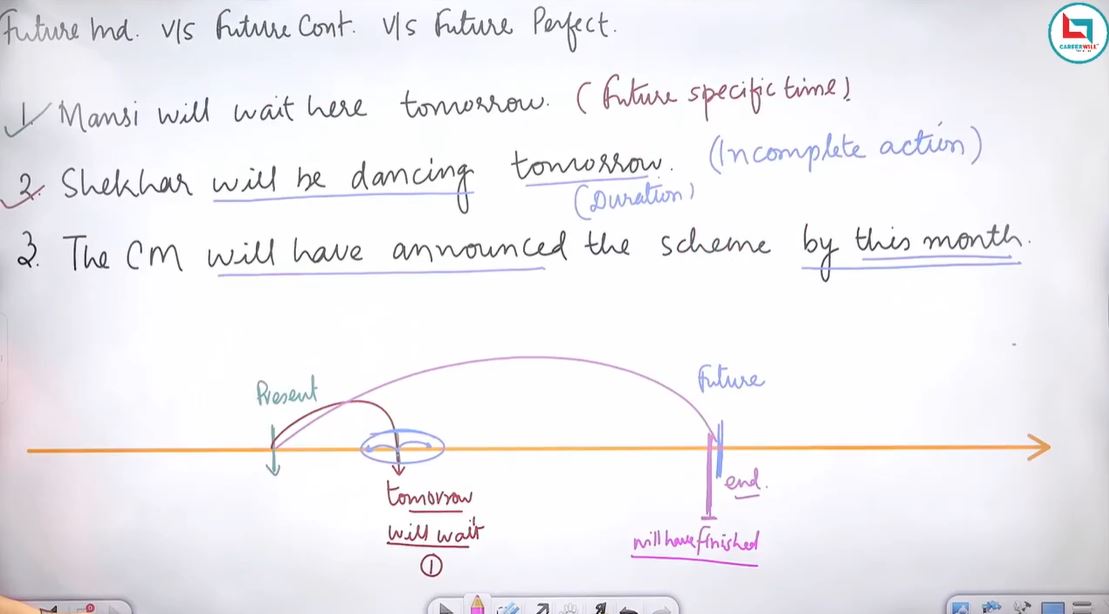 Future Ind. v/s Future Cont. v/s Future Perfect.
CAREERWILL
1. Mansi will wait here tomorrow. (future specific time)
2. Shekhar will be dancing tomorrow. (Incomplete action)
(Duration)
3. The CM will have announced the scheme by this month.
Present
Future
tomorrow
will wait
①
end.
will have finished